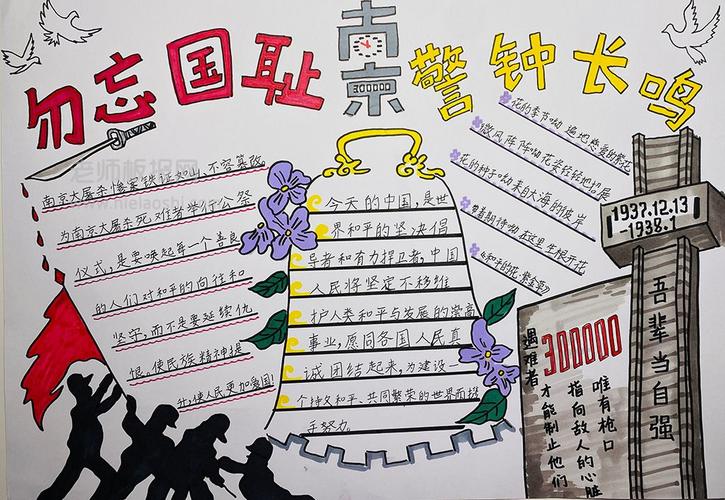 勿忘国耻
南京
警钟长鸣
老师板报网
南京大屠杀惨案铁证如山、不容篡改
为南京大屠杀死难者举行公祭
仪式，是要唤起每一个善良
的人们对和平的向往和
坚守，而不是要延续仇
恨。使民族精神提
升，使人民更加爱国！
今天的中国，是世
界和平的坚决倡
导者和有力捍卫者，中国
人民将坚定不移维
护人类和平与发展的崇高
事业，愿同各国人民真
诚团结起来，为建设一
个持久和平、共同繁荣的世界而携
手努力。
花的季节呦 遍地慈爱的紫花
微风阵阵呦花荚轻轻地扩展
花的种子呦来自大海的彼岸
期待呦在这里生根开花
《和平的花·紫金草》
1937.12.13
-1938.1
吾辈当自强
遇难者
300000
唯有枪口
指向敌人的心脏
才能制止他们